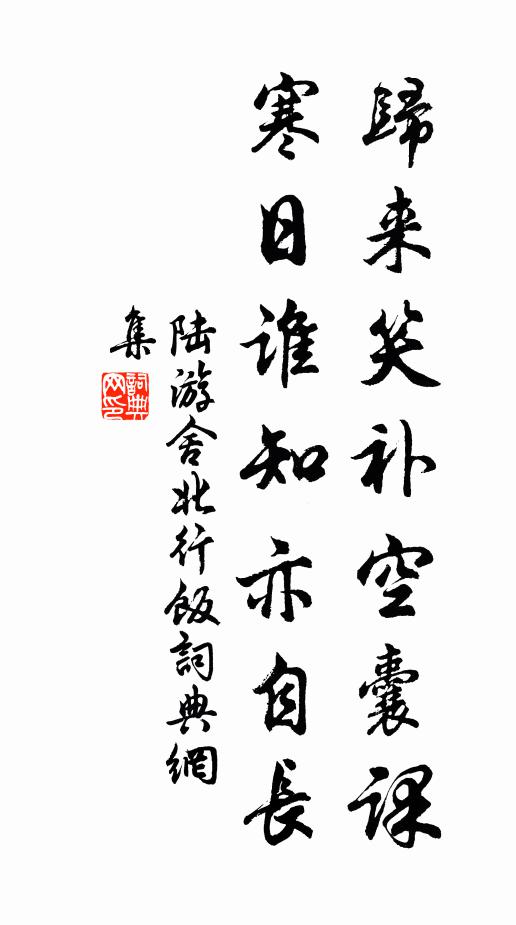 歸来笑补空囊課
寒日誰知亦自長
陆游舍北行飯詞典網
集
詞典网印